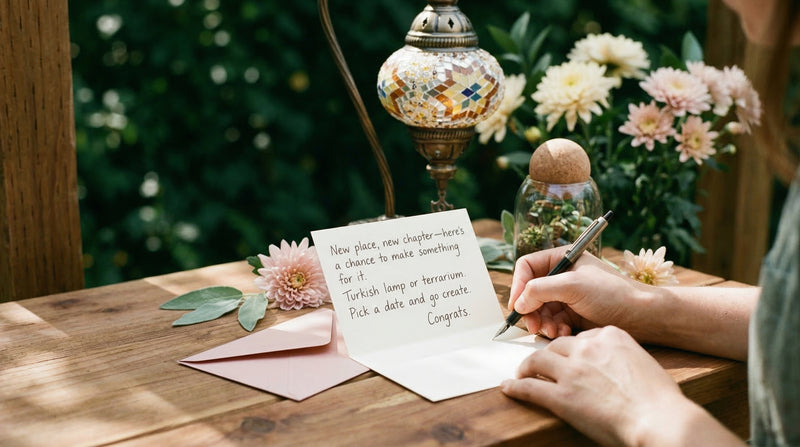 New place, new chapter—here's
a chance to make something
for it.
Turkish lamp or terrarium.
Pick a date and go create.
Congrats.